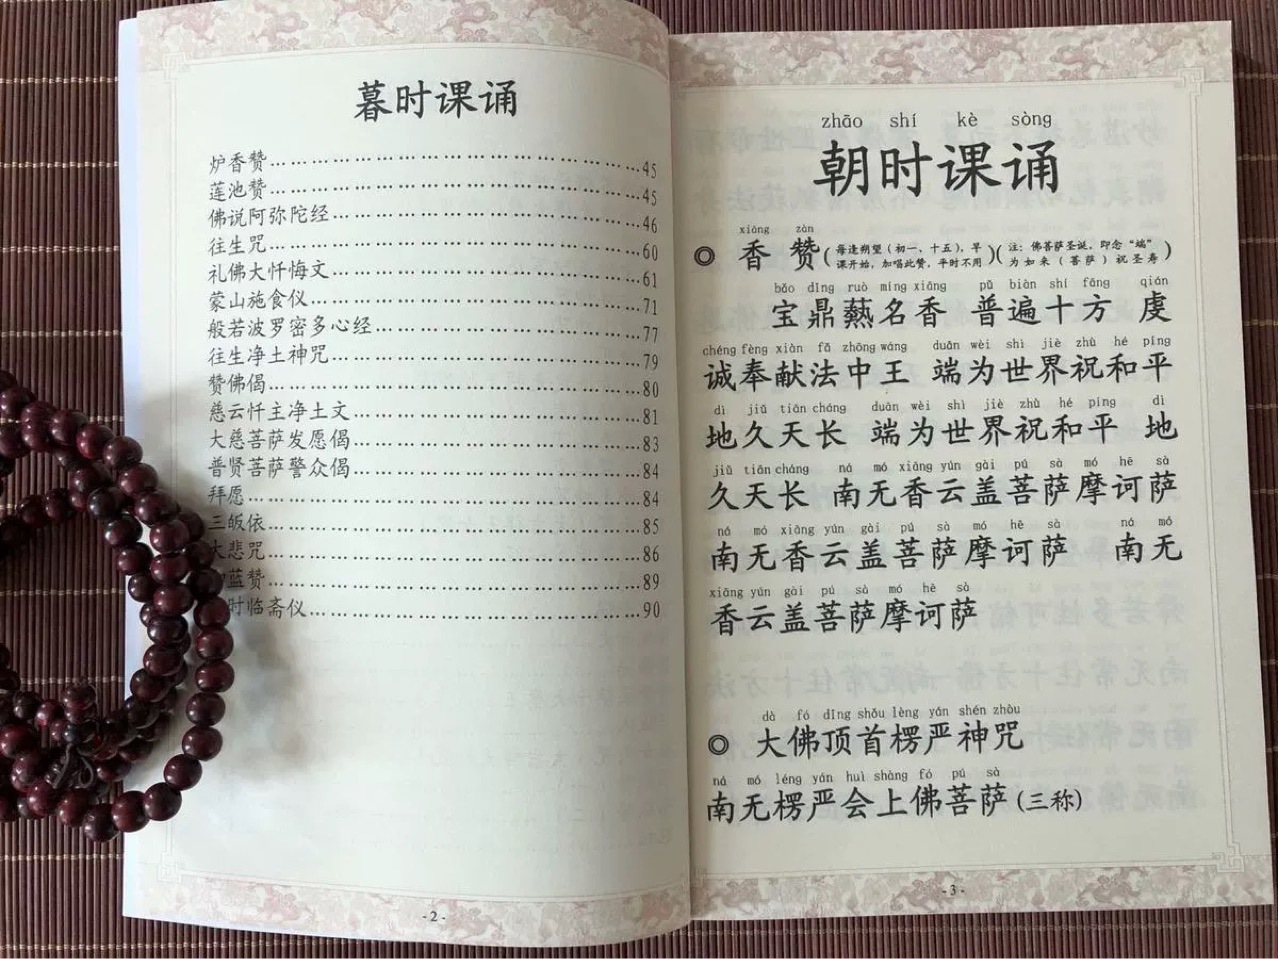 暮时课诵
炉香赞………………………………………………45
莲池赞………………………………………………45
佛说阿弥陀经………………………………………46
往生咒………………………………………………60
礼佛大忏悔文………………………………………61
蒙山施食仪…………………………………………71
般若波罗密多心经…………………………………77
往生净土神咒………………………………………79
赞佛偈………………………………………………80
慈云忏主净土文……………………………………81
大慈菩萨发愿偈……………………………………83
普贤菩萨警众偈……………………………………84
拜愿…………………………………………………84
三皈依………………………………………………85
大悲咒………………………………………………86
蓝赞…………………………………………………89
时临斋仪……………………………………………90
- 2 -
zhāo shí kè sòng
朝时课诵
xiāng zàn
◎ 香赞(每逢朔望(初一、十五),早课开始,加唱此赞,平时不用)(注:佛菩萨圣诞,即念“端”为如来(菩萨)祝圣寿)
bǎo dǐng ruò míng xiāng pǔ biàn shí fāng qián
宝鼎爇名香 普遍十方 虔
chéng fèng xiàn fǎ zhōng wáng duān wèi shì jiè zhù hé píng
诚奉献法中王 端为世界祝和平
dì jiǔ tiān cháng duān wèi shì jiè zhù hé píng dì
地久天长 端为世界祝和平 地
jiǔ tiān cháng ná mó xiāng yún gài pú sà mó hē sà
久天长 南无香云盖菩萨摩诃萨
ná mó xiāng yún gài pú sà mó hē sà ná mó
南无香云盖菩萨摩诃萨 南无
xiāng yún gài pú sà mó hē sà
香云盖菩萨摩诃萨
dà fó dǐng shǒu léng yán shén zhòu
◎ 大佛顶首楞严神咒
ná mó léng yán huì shàng fó pú sà
南无楞严会上佛菩萨(三称)
- 3 -